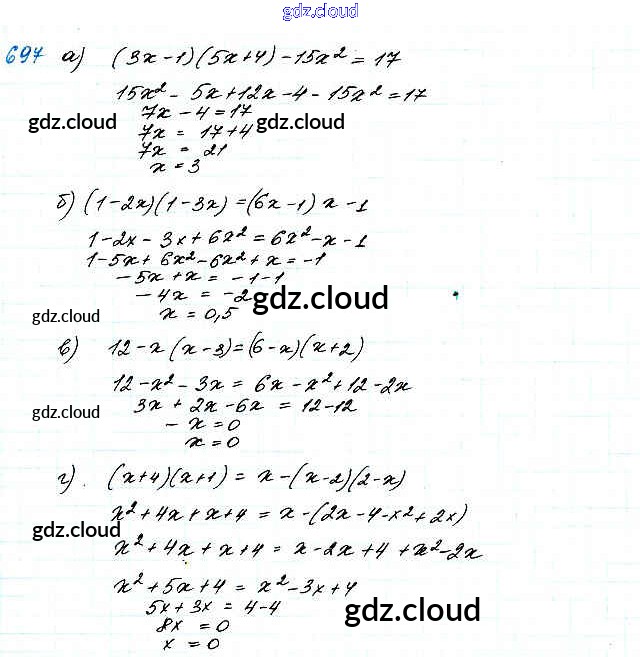 gdz.cloud
697 а) (3x-1)(5x+4)-15x² = 17
15x² - 5x+12x-4-15x²=17
7x-4=17
gdz.cloud 7x = 17+4 gdz.cloud
7x = 21
x=3
б) (1-2x)(1-3x)=(6x-1)x-1
1-2x-3x+6x²=6x²-x-1
1-5x+6x²-6x²+x=-1
-5x+x = -1-1
-4x = -2 gdz.cloud
gdz.cloud x = 0,5
в) 12-x(x-3)=(6-x)(x+2)
12-x²-3x = 6x-x²+12-2x
3x+2x-6x = 12-12
gdz.cloud -x=0 gdz.cloud
x=0
г). (x+4)(x+1) = x-(x-2)(2-x)
x²+4x+x+4 = x-(2x-4-x²+2x)
gdz.cloud
x²+4x+x+4 = x-2x+4+x²-2x
x²+5x+4 = x²-3x+4
5x+3x = 4-4
8x = 0 gdz.cloud
x = 0